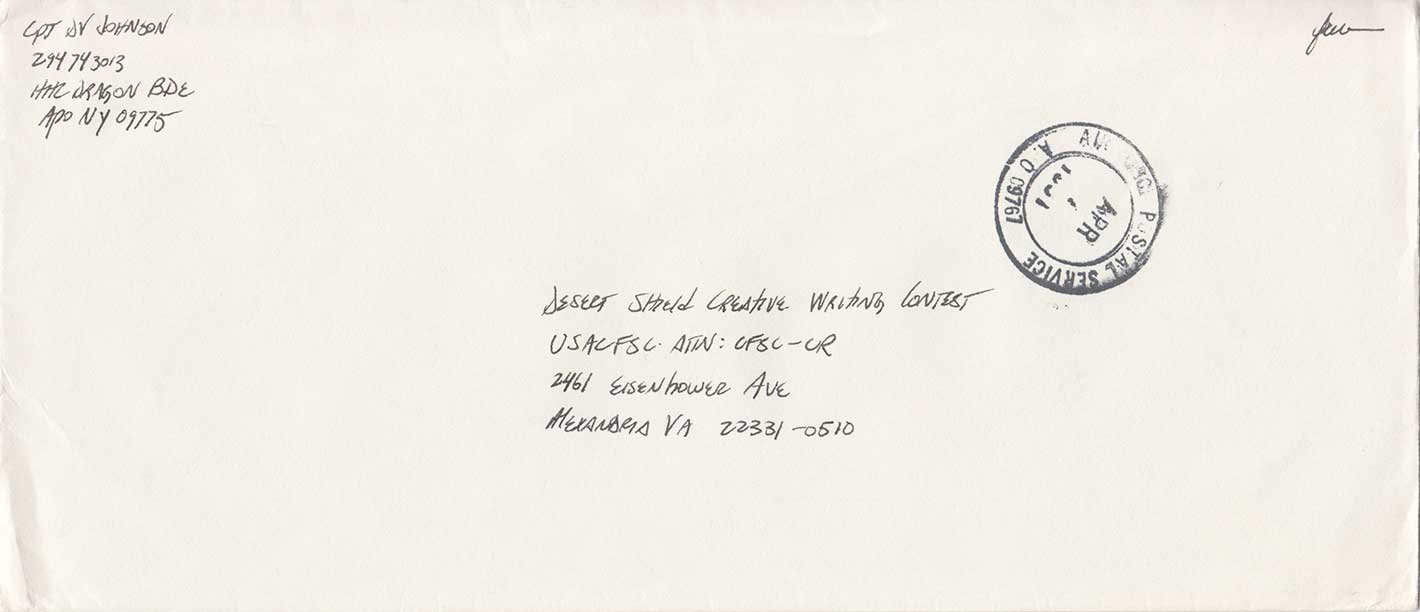 CPT DV JOHNSON
294743013
HHC DRAGON BDE
APO NY 09775
Free
POSTAL SERVICE
09767
APR
1991
DESERT SHIELD CREATIVE WRITING CONTEST
USACFSC ATTN: CFSC-CR
2461 EISENHOWER AVE
ALEXANDRIA VA 22331-0510